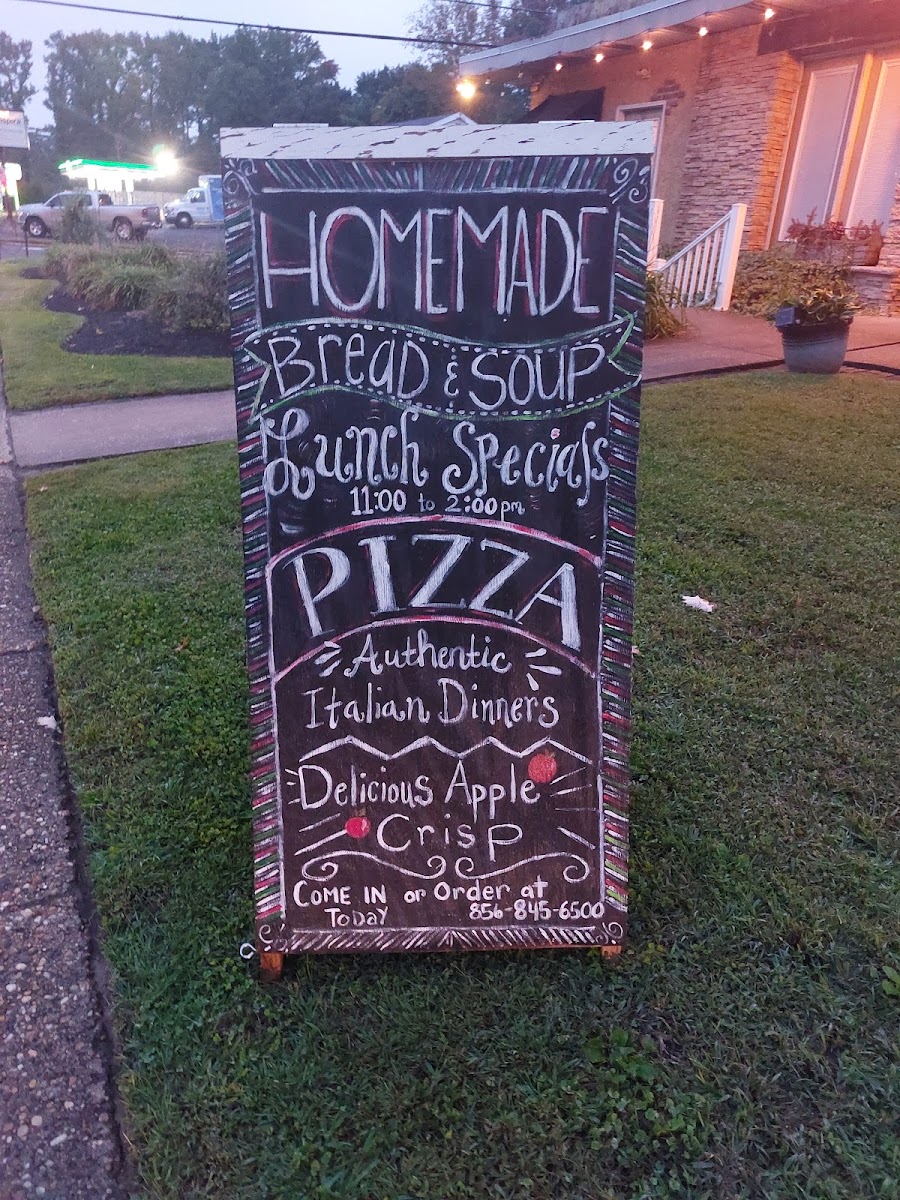 HOMEMADE
Bread & SOUP
Lunch Specials
11:00 to 2:00pm
PIZZA
Authentic
Italian Dinners
Delicious Apple
Crisp
COME IN or Order at
TODAY 856-845-6500